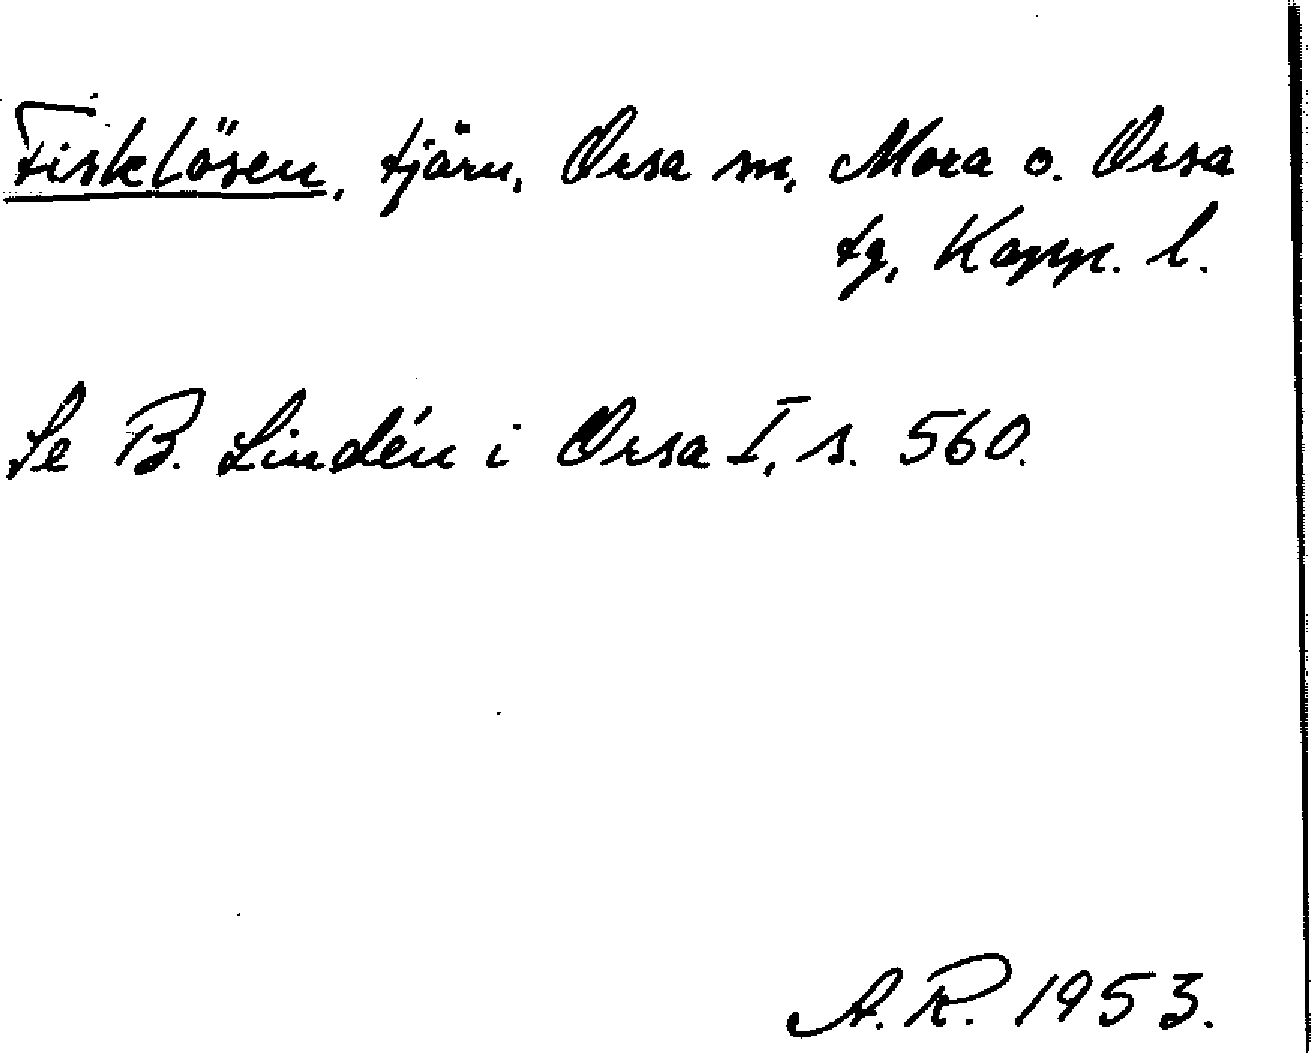 Fisklösen, tjärn, Orsa sn, Mora o. Orsa
tg, Kopp. l.
Se B. Lindén i Orsa I, s. 560.
A. R. 1953.